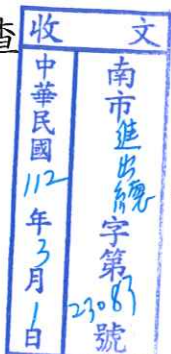 查
收文
南市進出德字第23083號
中華民國112年3月1日